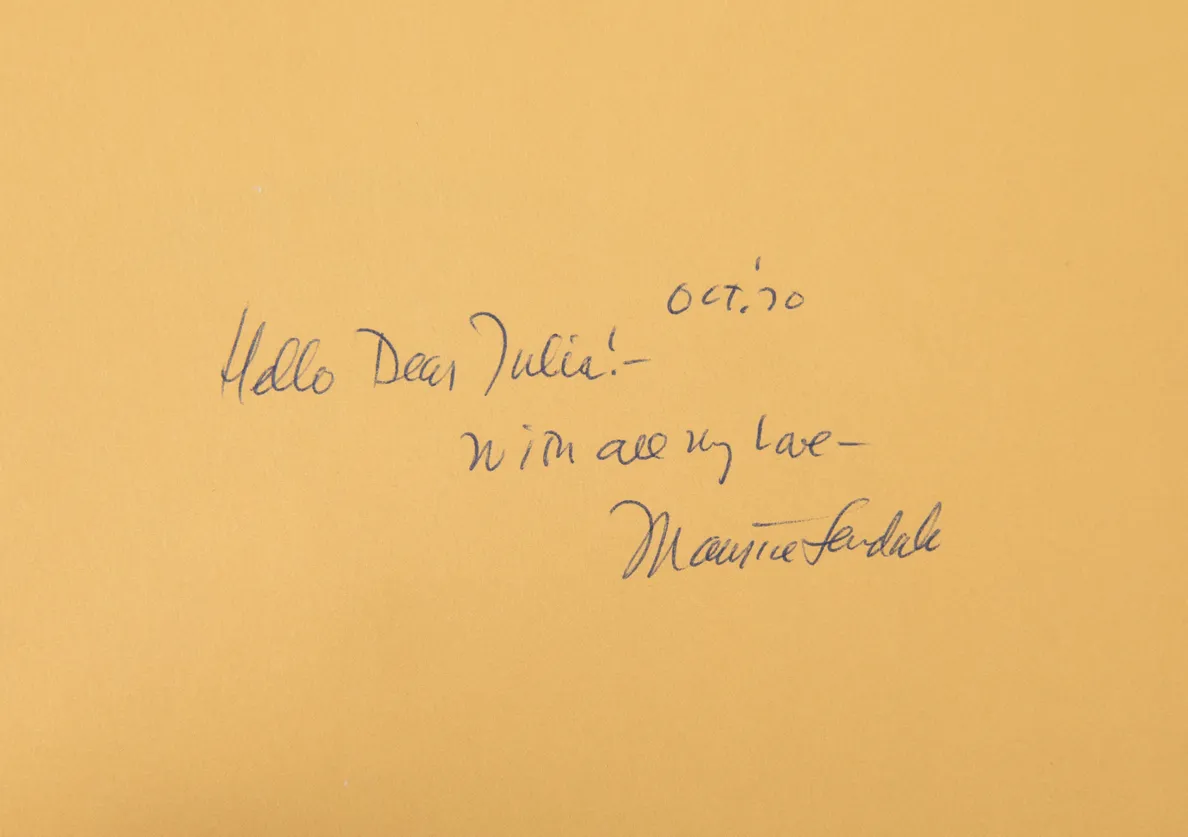 Oct. '70
Hello Dear Julia! –
With all my Love –
Maurice Sendak